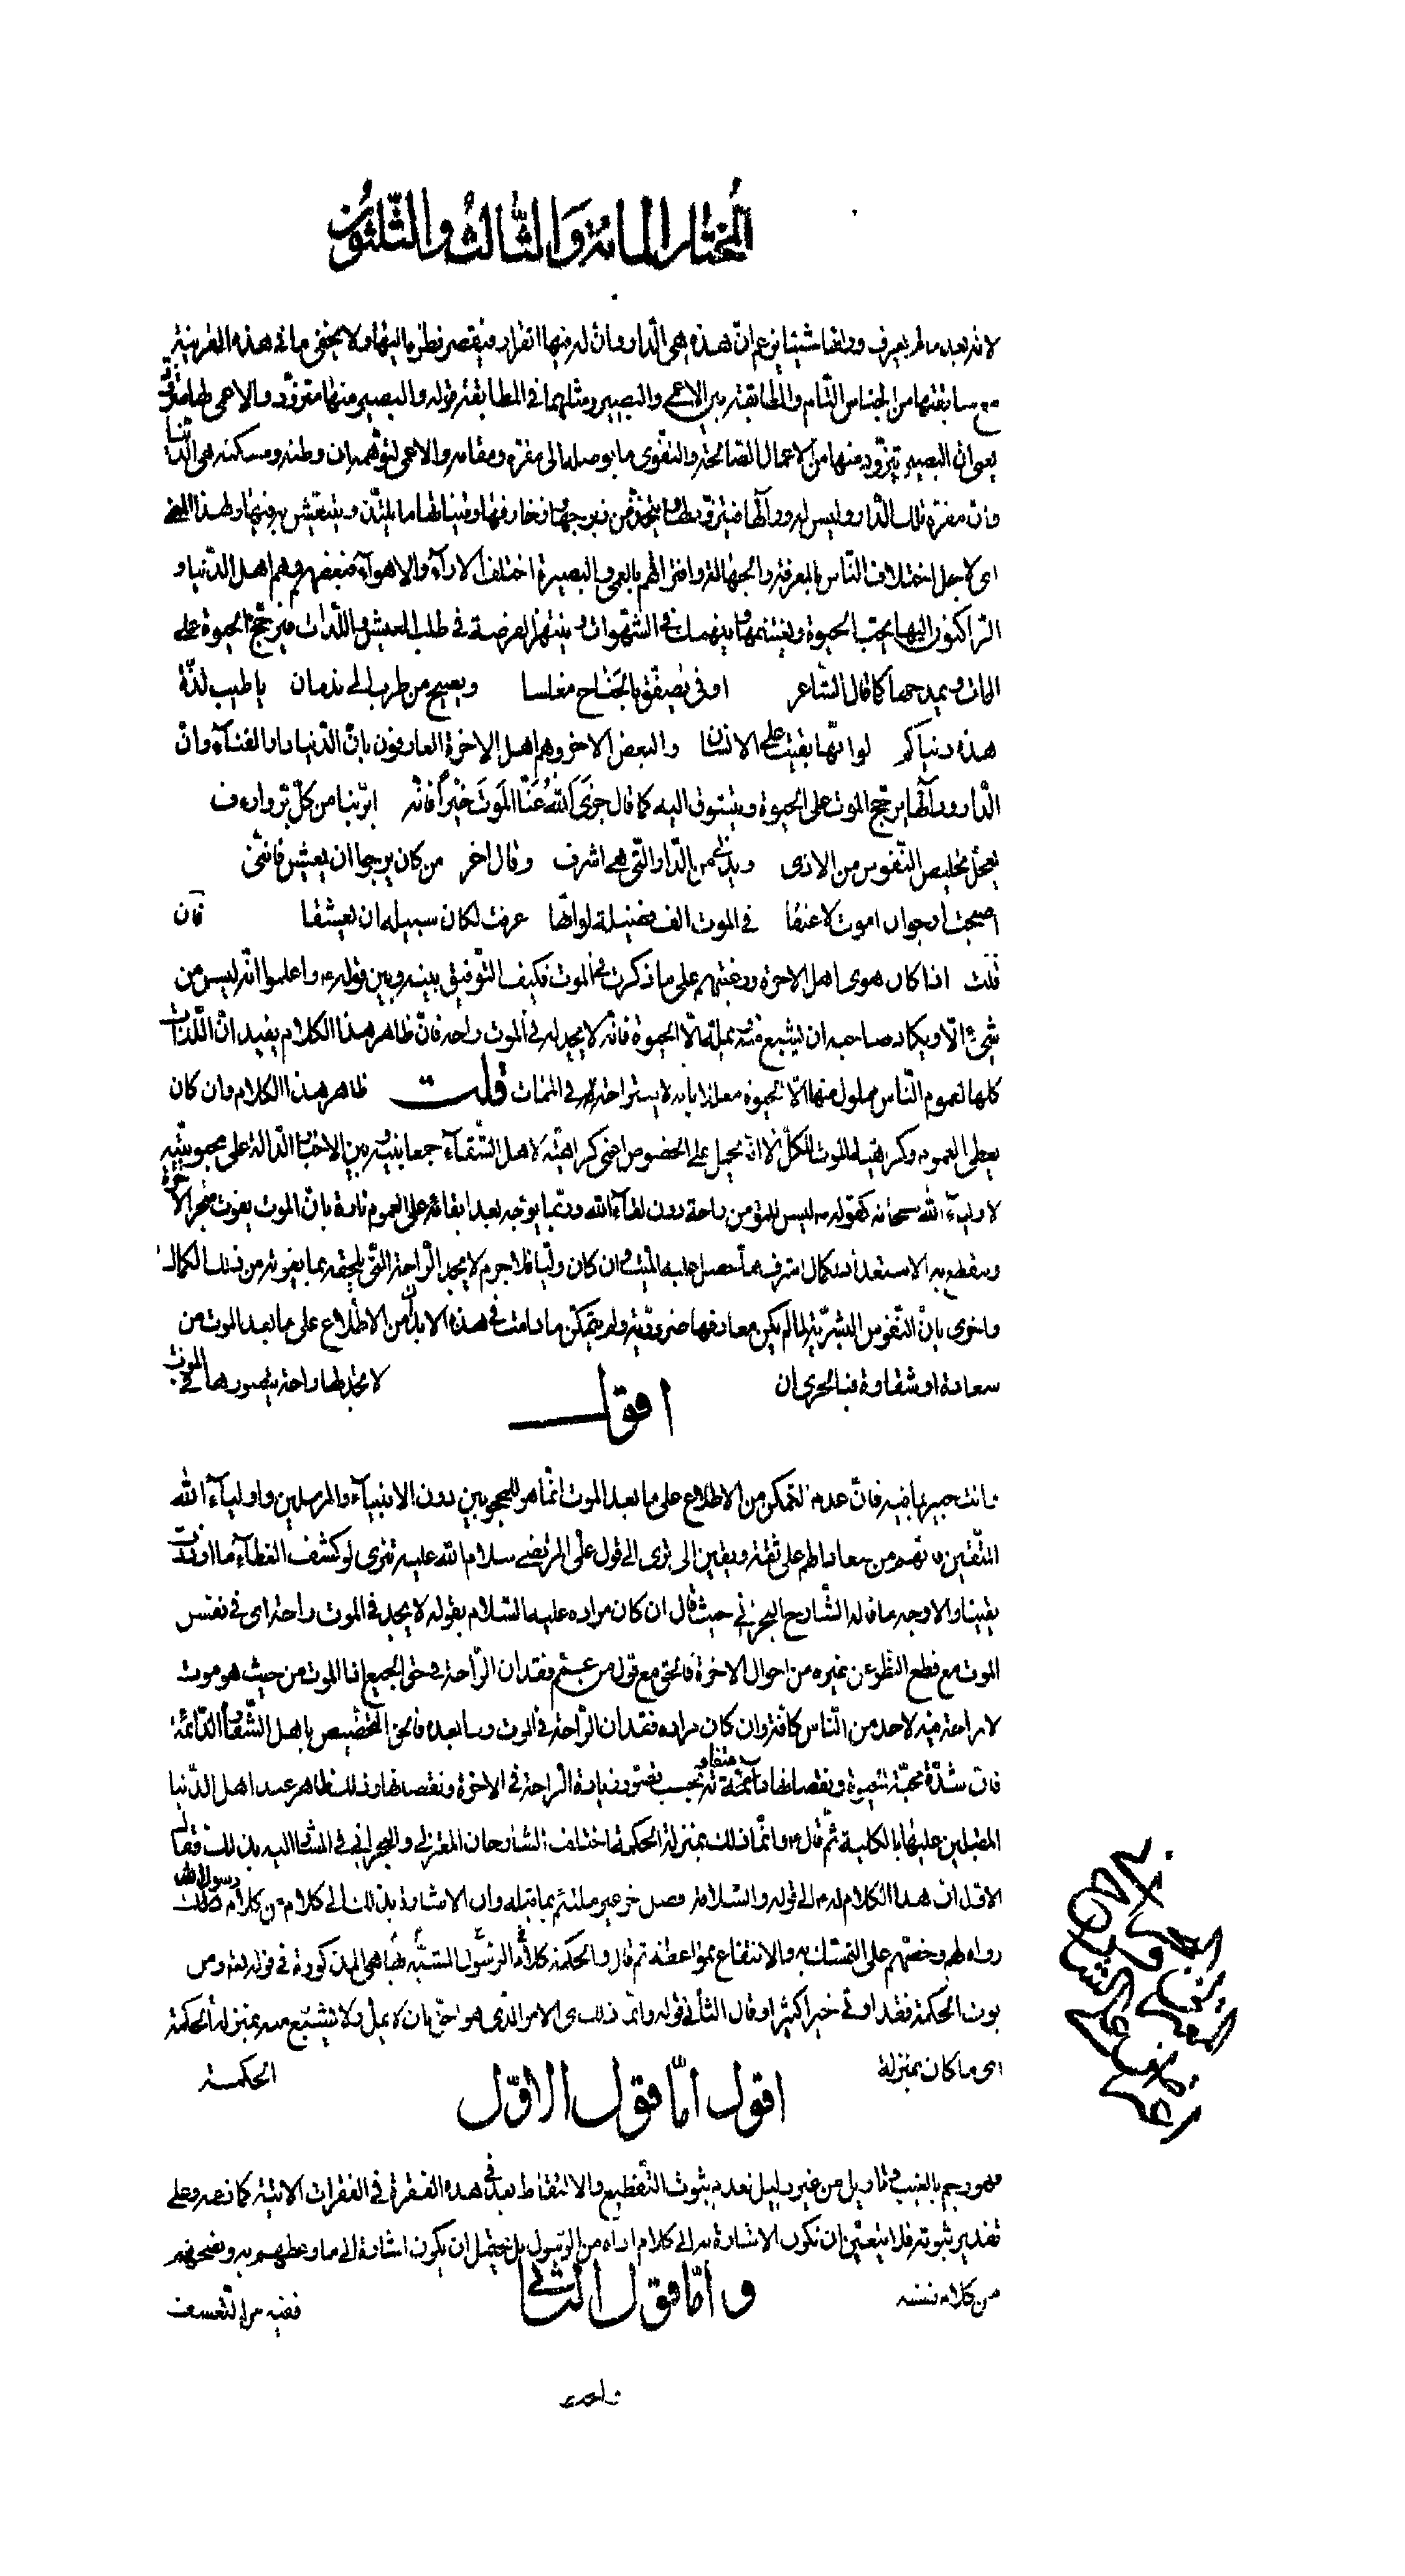 المختار المائة والثالث والثلثون
لانه بعد ما لم يعرف وراءها شيئا يزعم انّ هذه هى الدّار وانّ له فيها القرار فيقصر نظره اليها ولا يخفى ما فى هذه القرينة
مع سابقتها من الجناس التّام والمطابقة بين الاعمى والبصير ومثلهما فى المطابقة قوله والبصير منها متزوّد والاعمى لها متزوّد
يعنى ان البصير يتزوّد منها من الاعمال الصّالحة والتقوى ما يوصله الى مقرّه ومقامه والاعمى لتوهّمه ان وطنه ومسكنه هى الدّنيا
وانّ مقرّه تلك الدّار وليس له ورآئها فيتزوّد لها ويتّخذ من زبرجها وزخارفها وقيناتها ما يلتذّ ويتعيّش به فيها ولهذا المعنى
اى لاجل اختلاف النّاس بالمعرفة والجهالة وافتراقهم بالعمى والبصيرة اختلف الارآء والاهوآء فبعضهم وهم اهل الدّنيا و
الرّاكنون اليها يحبّ الحيوة ويغتنمها وينهمك فى الشّهوات وينتهز الفرصة فى طلب العيش واللّذات فيرجّح الحيوة على
المات ويمدحها كما قال الشّاعر اوفى يصفّق بالجناح مغلسا ويصيح من طرب الى ندمان يا طيب لذّة
هذه دنياكم لو انّها بقيت على الانسان والبعض الاخر وهم اهل الاخرة العارفون بانّ الدّنيا دار الفنآء وانّ
الدّار ورآئها يرجّح الموت على الحيوة ويتشوق اليه كما قال جزى اللّه عنّا الموت خيرا فانّه ابرّ بنا من كلّ برّ وارءف
يعجّل تخليص النّفوس من الاذى ويدنى من الدّار الّتى هى اشرف وقال اخر من كان يرجو ان يعيش فانّنى
اصبحت ارجو ان اموت لاعتقا فى الموت الف فضيلة لو انّها عرفت لكان سبيله ان يعشقا فان
قلت اذا كان هوى اهل الاخرة ورغبتهم على ما ذكرت فى الموت فكيف التّوفيق بينه وبين قوله واعلموا انّه ليس من
شىء الّا ويكاد صاحبه ان يشبع منه ويملّه الّا الحيوة فانّه لا يجد له فى الموت راحة فانّ ظاهر هذا الكلام يفيد انّ اللّذات
كلها لعموم النّاس مملول منها الّا الحيوة معلّلا بانه لا يستراحة لهم فى الممات قلت ظاهر هذا الكلام وان كان
يعطى العموم وكراهية الموت للكلّ الّا انّه يحمل على الخصوص اعنى كراهيّته لاهل الشّقآء جمعا بينه وبين الاخبار الدّالة على محبوبيّته
لاوليآء اللّه سبحانه كقوله ليس للمؤمن راحة دون لقآء اللّه وربّما يوجّه بعد ابقائه على العموم تارة بانّ الموت يفوت متجر الاخرة
وينقطع به الاستعداد لكمال اشرف ممّا حصل عليه الميّت وان كان وليّا فلا جرم لا يجد الرّاحة الّتى تلحقه بما يفوته من ذلك الكمال
واخرى بانّ النّفوس البشريّة لمّا لم يكن معارفها ضروريّة ولم يتمكّن ما دامت فى هذه الابدان من الاطّلاع على ما بعد الموت من
سعادة او شقاوة فبالحرى ان لا تجد لها راحة يتصورها فى الموت
اقول
وانت خبير بما فيه فانّ عدم التمكّن من الاطلاع على ما بعد الموت انّما هو للمحجوبين دون الانبيآء والمرسلين واوليآء اللّه
المتّقين فانّهم من معادهم على ثقة ويقين الا ترى الى قول علىّ المرتضى سلام اللّه عليه تترى لو كشف الغطآء ما ازددت
يقينا والاوجه ما قاله الشّارح البحرانى حيث قال ان كان مراده عليه السّلام بقوله لا يجد فى الموت راحة اى فى نفس
الموت مع قطع النّظر عن غيره من احوال الاخرة فالحق مع قول من عمّم فقدان الرّاحة فى حقّ الجميع اذ الموت من حيث هو موت
لا راحة فيه لاحد من النّاس كافّة وان كان مراده فقدان الرّاحة فى الموت وما بعده فالحق التّخصيص باهل الشّقاوة الدّائمة
فانّ شدّة محبّة الحيوة ونقصانها متفاوتة بحسب تصوّر زيادة الرّاحة فى الاخرة ونقصانها وذلك ظاهر عند اهل الدّنيا
المقبلين عليها بالكلية ثمّ قال وانّما ذلك بمنزلة الحكمة اختلف الشّارحان المعتزلى والبحرانى فى المشار اليه بذلك فقال
الاوّل ان هذا الكلام له الى قوله والسّلامة فصل اخر غير ملتئم بما قبله وان الاشارة بذلك الى كلام من كلام رسول اللّه
رواه لهم وحضّهم على التمسّك به والانتفاع بمواعظه ثم قال والحكمة المشبّه كلام الرّسول بها هى المذكورة فى قوله تعالى ومن
يؤت الحكمة فقد اوتى خيرا كثيرا وقال الثّانى قوله وانّما ذلك اى الامر الّذى هو احقّ بان لا يملّ ولا يشبع منه بمنزلة الحكمة
اى ما كان بمنزلة الحكمة
اقول امّا قول الاوّل
فهو رجم بالغيب وتاويل من غير دليل لعدم ثبوت التّقطيع والالتقاط بعد فى هذه الفقرة فى الفقرات الاتية كما زعمه وعلى
تقدير ثبوته فلا يتعيّن ان تكون الاشارة به الى كلام رواه من الرّسول بل يحتمل ان يكون اشارة الى ما وعظهم به ونصحهم
من كلام نفسه وامّا قول الثّانى ففيه من التّعسف